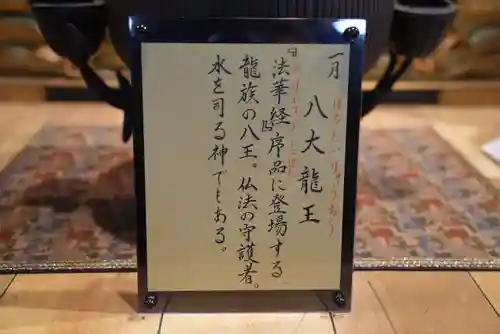 一月
八大龍王
はちだいりゅうおう
『法華経』序品に登場する
龍族の八王。仏法の守護者。
水を司る神でもある。